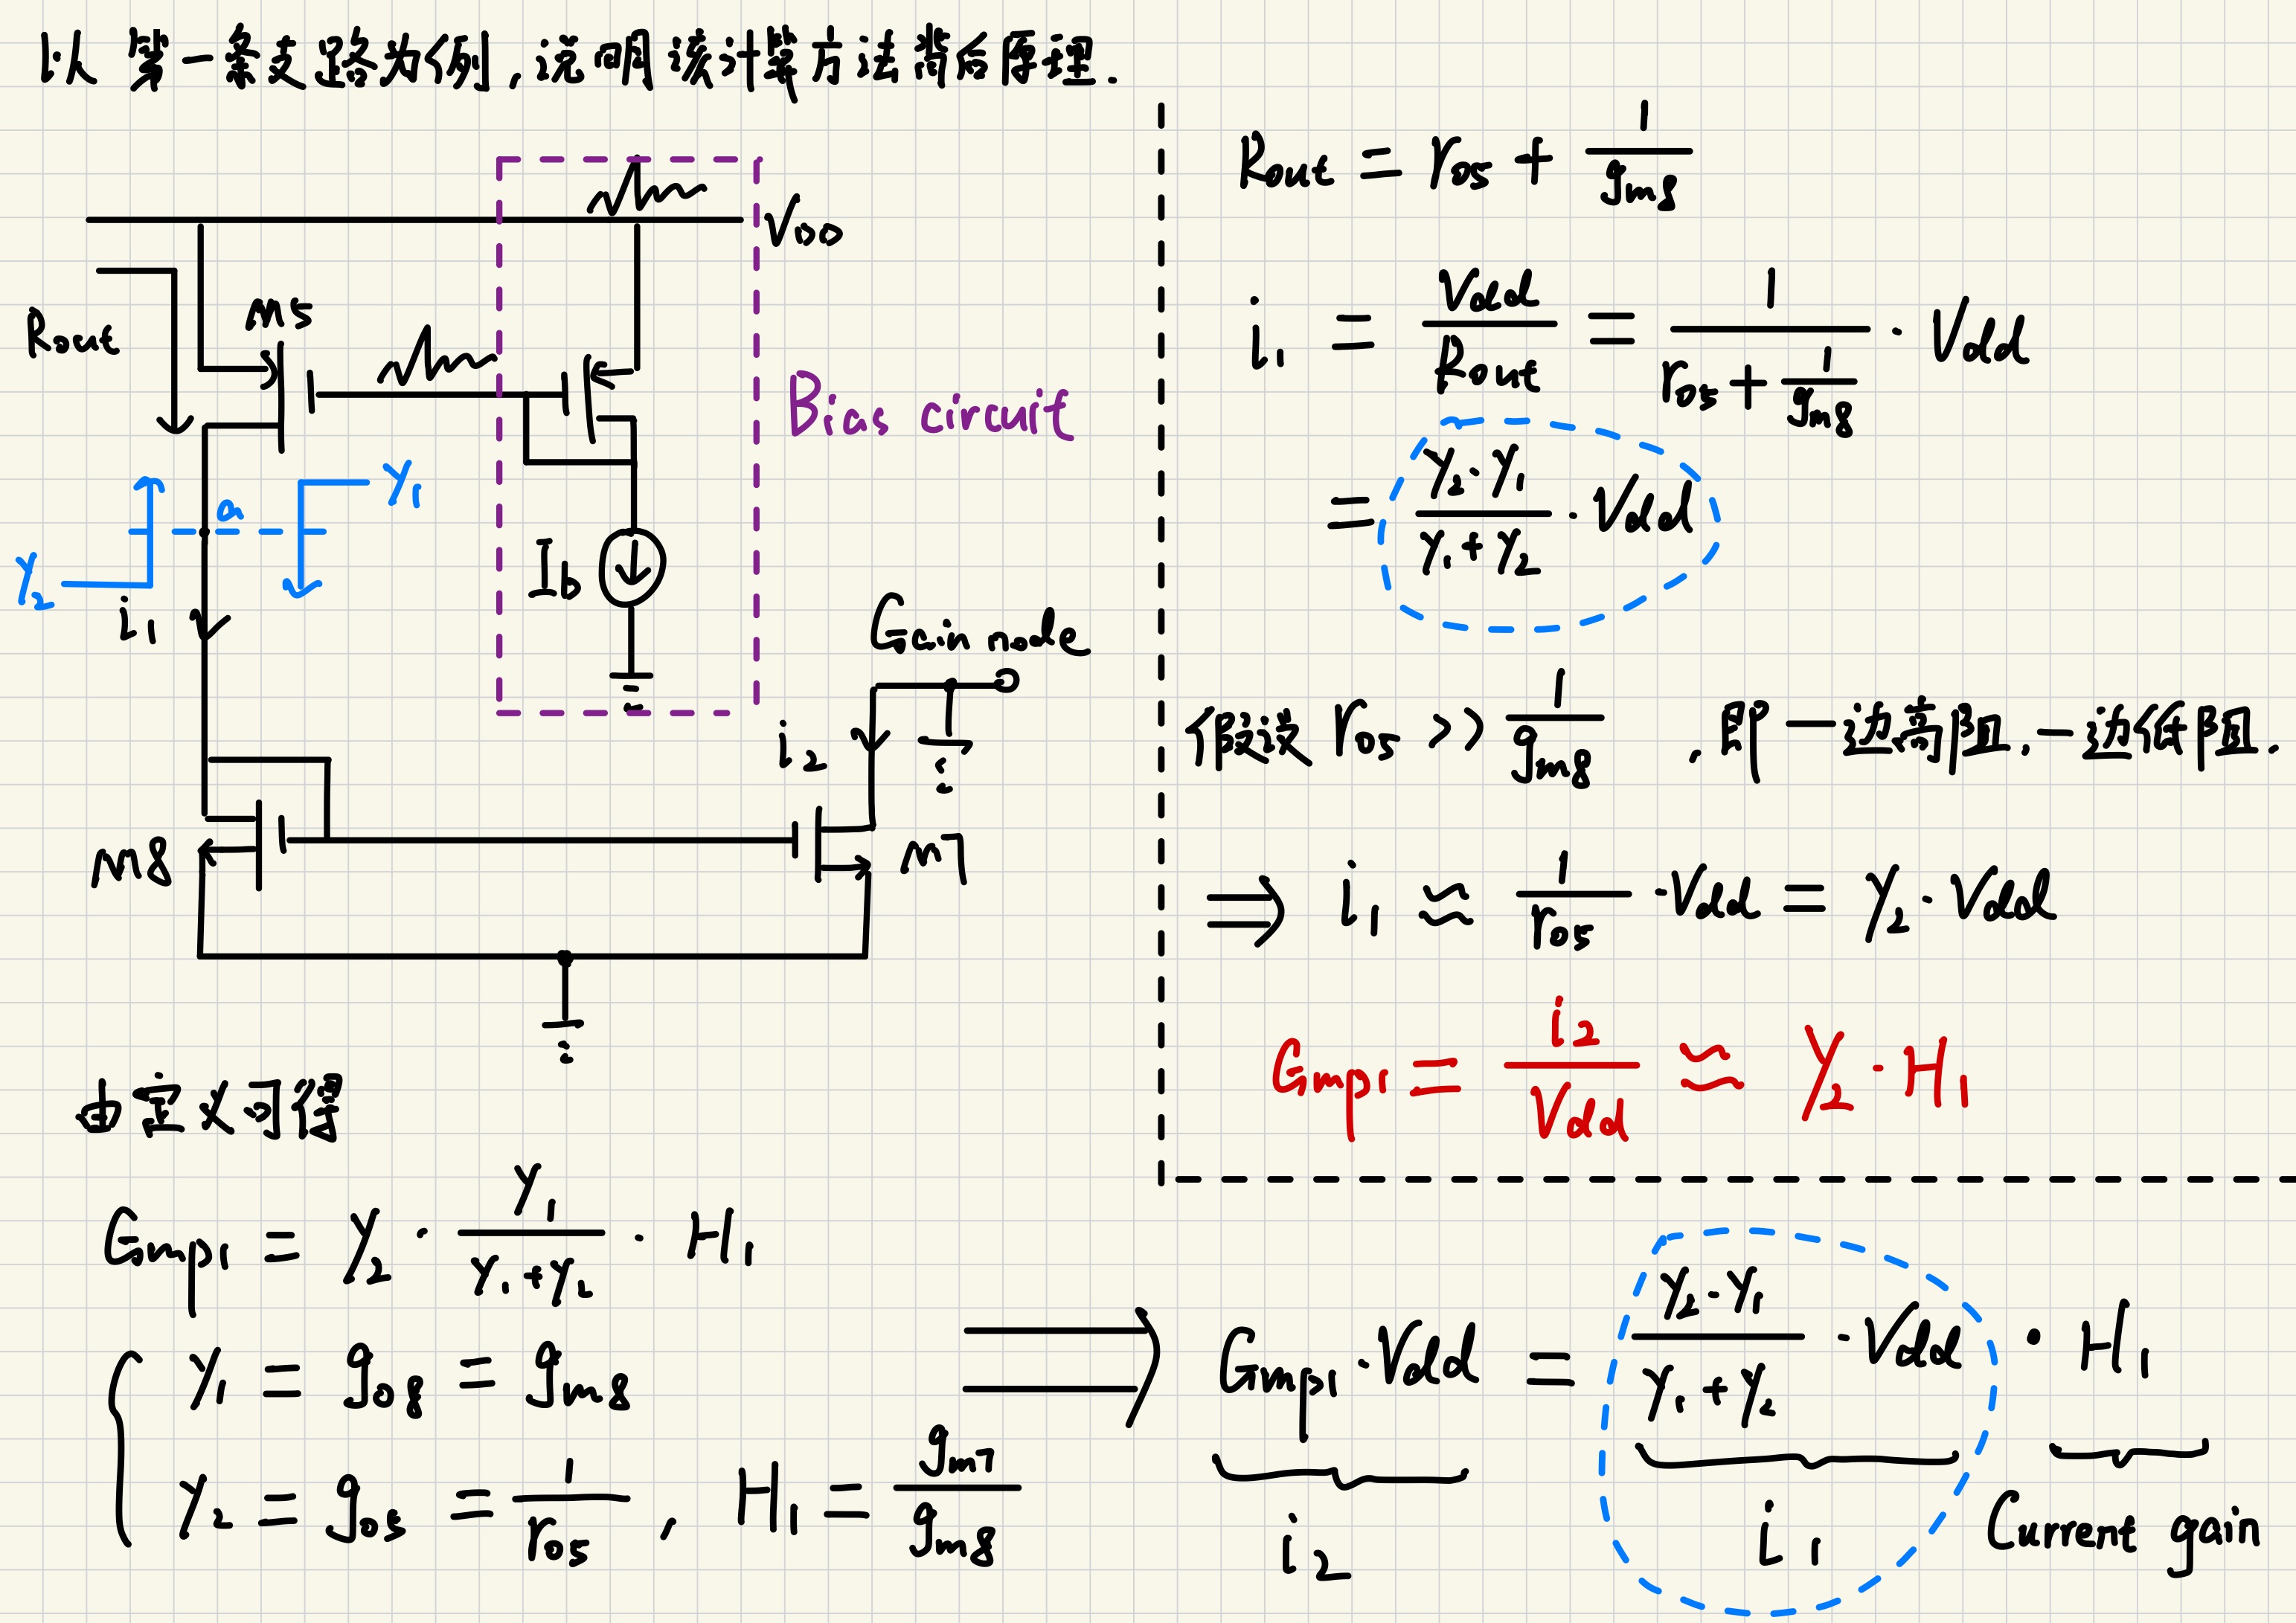 以第一条支路为例,说明该计算方法背后原理.
V_DD
M5
Rout
Bias circuit
Y_1
a
Y_2
i_1
I_b
Gain node
i_2
M8
M7
R_out = r_o5 + 1/g_m8
i_1 = V_dd/R_out = 1/(r_o5 + 1/g_m8) · V_dd
= (Y_2·Y_1)/(Y_1+Y_2) · V_dd
假设 r_o5 >> 1/g_m8 ,即一边高阻,一边低阻.
⇒ i_1 ≈ 1/r_o5 · V_dd = Y_2 · V_dd
G_mp1 = i_2/V_dd ≈ Y_2 · H_1
由定义可得
G_mp1 = Y_2 · Y_1/(Y_1+Y_2) · H_1
Y_1 = g_o8 = g_m8
Y_2 = g_o5 = 1/r_o5 , H_1 = g_m7/g_m8
⇒ G_mp1 · V_dd = (Y_2·Y_1)/(Y_1+Y_2) · V_dd · H_1
i_2
i_1
Current gain